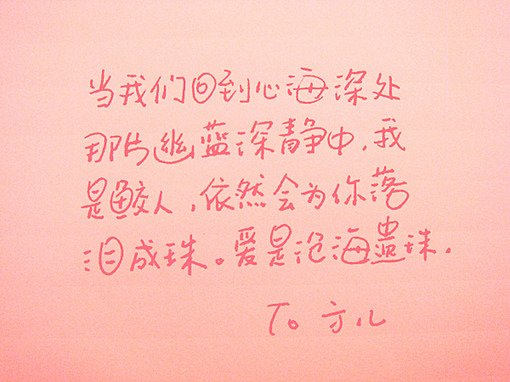 当我们回到心海深处
那片幽蓝深静中，我
是鲛人，依然会为你落
泪成珠。爱是沧海蛊珠．
To 方儿